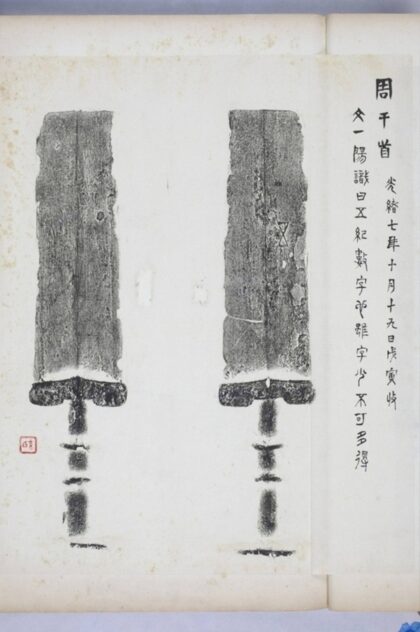 周干首
光緒七年十月十九日戊寅收
文一陽識曰五紀數字也雖字少不可多得